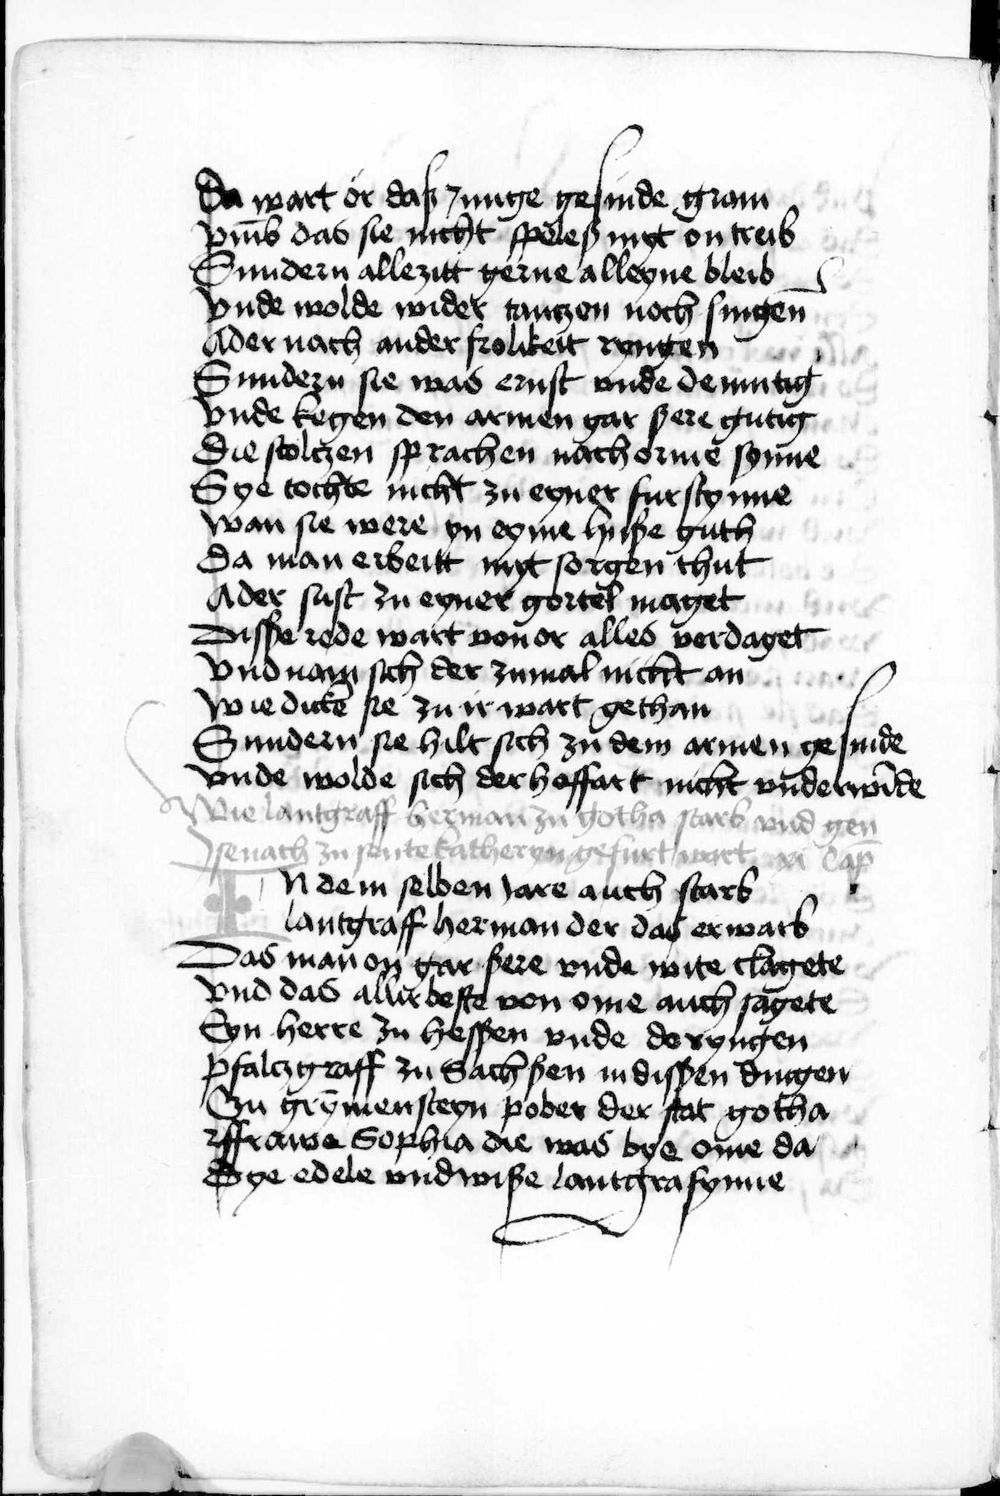 Da wart ör daß junge gesinde gram
vm̄b das sie nicht speleß myt on treib
Sundern allezitt gerne alleyne bleib
vnde wolde wider tantzen noch singen̄
Ader nach ander frolikeit ryngen
Sundern sie was ernst vnde demutig
vnde kegen den armen gar ßere gutig
Die stoltzen sprachen nach orme synne
Sye tochte nicht zu eyner furstynne
wan sie were yn eyme huße guth
Da man erbeitt myt sorgen thut
Ader sust zu eyner gortel maget
Disse rede wart von or alles verdaget
vnd nam sich der zumal nicht an
wie dicke sie zu ir wart gethan
Sundern sie hilt sich zu dem armen gesinde
vnde wolde sich der hoffart nicht vnderwinde
Wie lantgraff herman zu gotha starb vnd gen̄
Jsenach zu sente katheryn gefurt wart xi cap̄
In dem selben jare auch starb
lantgraff herman der das erwarb
Das man on gar ßere vnde wite clagete
vnd das allirbeste von ome auch sagete
Eyn herre zu hessen vnde doryngen
pfaltzgraff zu Sachßen in dissen dingen
Zu grȳmensteyn pober der stat gotha
ffrauwe Sophia die was bye ome da
Dye edele vnd wiße lantgrafynne